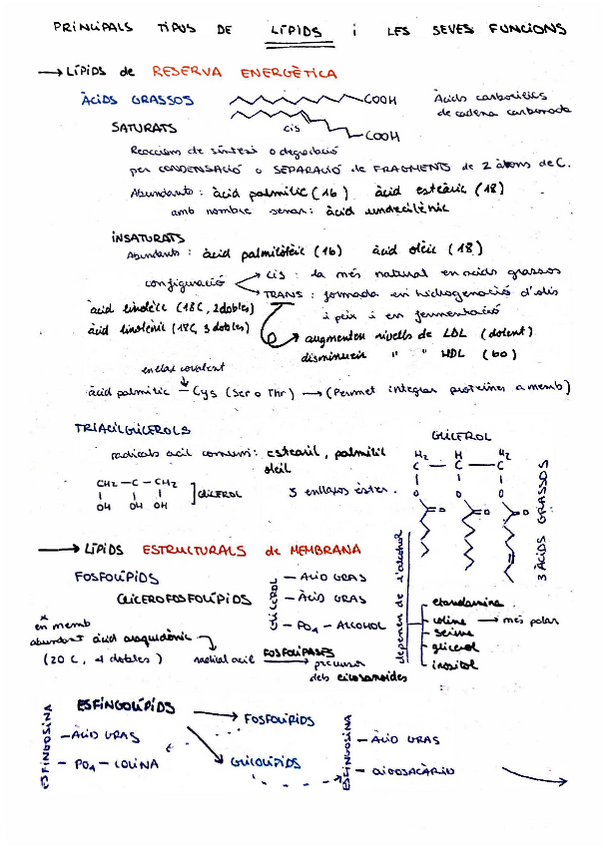 PRINCIPALS TIPUS DE LÍPIDS i LES SEVES FUNCIONS
→ LÍPIDS de RESERVA ENERGÈTICA
ÀCIDS GRASSOS
COOH
Àcids carboxílics
de cadena carbonada
cis
COOH
SATURATS
Reaccions de síntesi o degradació
per CONDENSACIÓ o SEPARACIÓ de FRAGMENTS de 2 àtoms de C.
Abundants: àcid palmític (16) àcid esteàric (18)
amb nombre senar: àcid undecilènic
INSATURATS
Abundants: àcid palmitoleic (16) àcid oleic (18)
configuració
cis: la més natural en àcids grassos
TRANS: formada en hidrogenació d'olis
i peix i en fermentació
àcid linoleic (18C, 2 dobles)
àcid linolenic (18C, 3 dobles)
augmenten nivells de LDL (dolent)
disminueix " " HDL (bo)
enllaç covalent
àcid palmític – Cys (Ser o Thr) → (Permet integrar proteïnes a memb)
TRIACILGLICEROLS
radicals acil comuns: estearil, palmitil
oleil
GLICEROL
H2 H H2
C — C — C
O O O
C O
CH2 – C – CH2
OH OH OH
GLICEROL
3 enllaços èster.
3 ÀCIDS GRASSOS
→ LÍPIDS ESTRUCTURALS de MEMBRANA
FOSFOLÍPIDS
GLICEROFOSFOLÍPIDS
GLICEROL
– ÀCID GRAS
– ÀCID GRAS
– PO4 – ALCOHOL
depenen de l'alcohol
etanolamina
colina → més polar
serina
glicerol
inositol
* en memb
abundant àcid araquidònic
(20 C, 4 dobles)
radical acil
FOSFOLIPASES
precursor
dels eicosanoides
ESFINGOLÍPIDS
FOSFOLÍPIDS
GLICOLÍPIDS
ESFINGOSINA
– ÀCID GRAS
– PO4 – COLINA
ESFINGOSINA
– ÀCID GRAS
– OLIGOSACÀRID